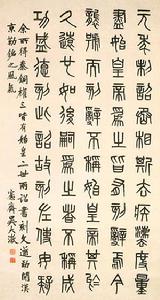 元年制詔丞相斯去疾灋度量
盡始皇帝為之皆有刻辭焉今
襲號而刻辭不稱始皇帝其於
久遠也如後嗣為之者不稱成
功盛德刻此詔故刻左使毋疑
余所得秦銅權三皆有始皇二世兩詔書刻文遒勁開漢
京勒銘之風氣
愙齋吳大澂